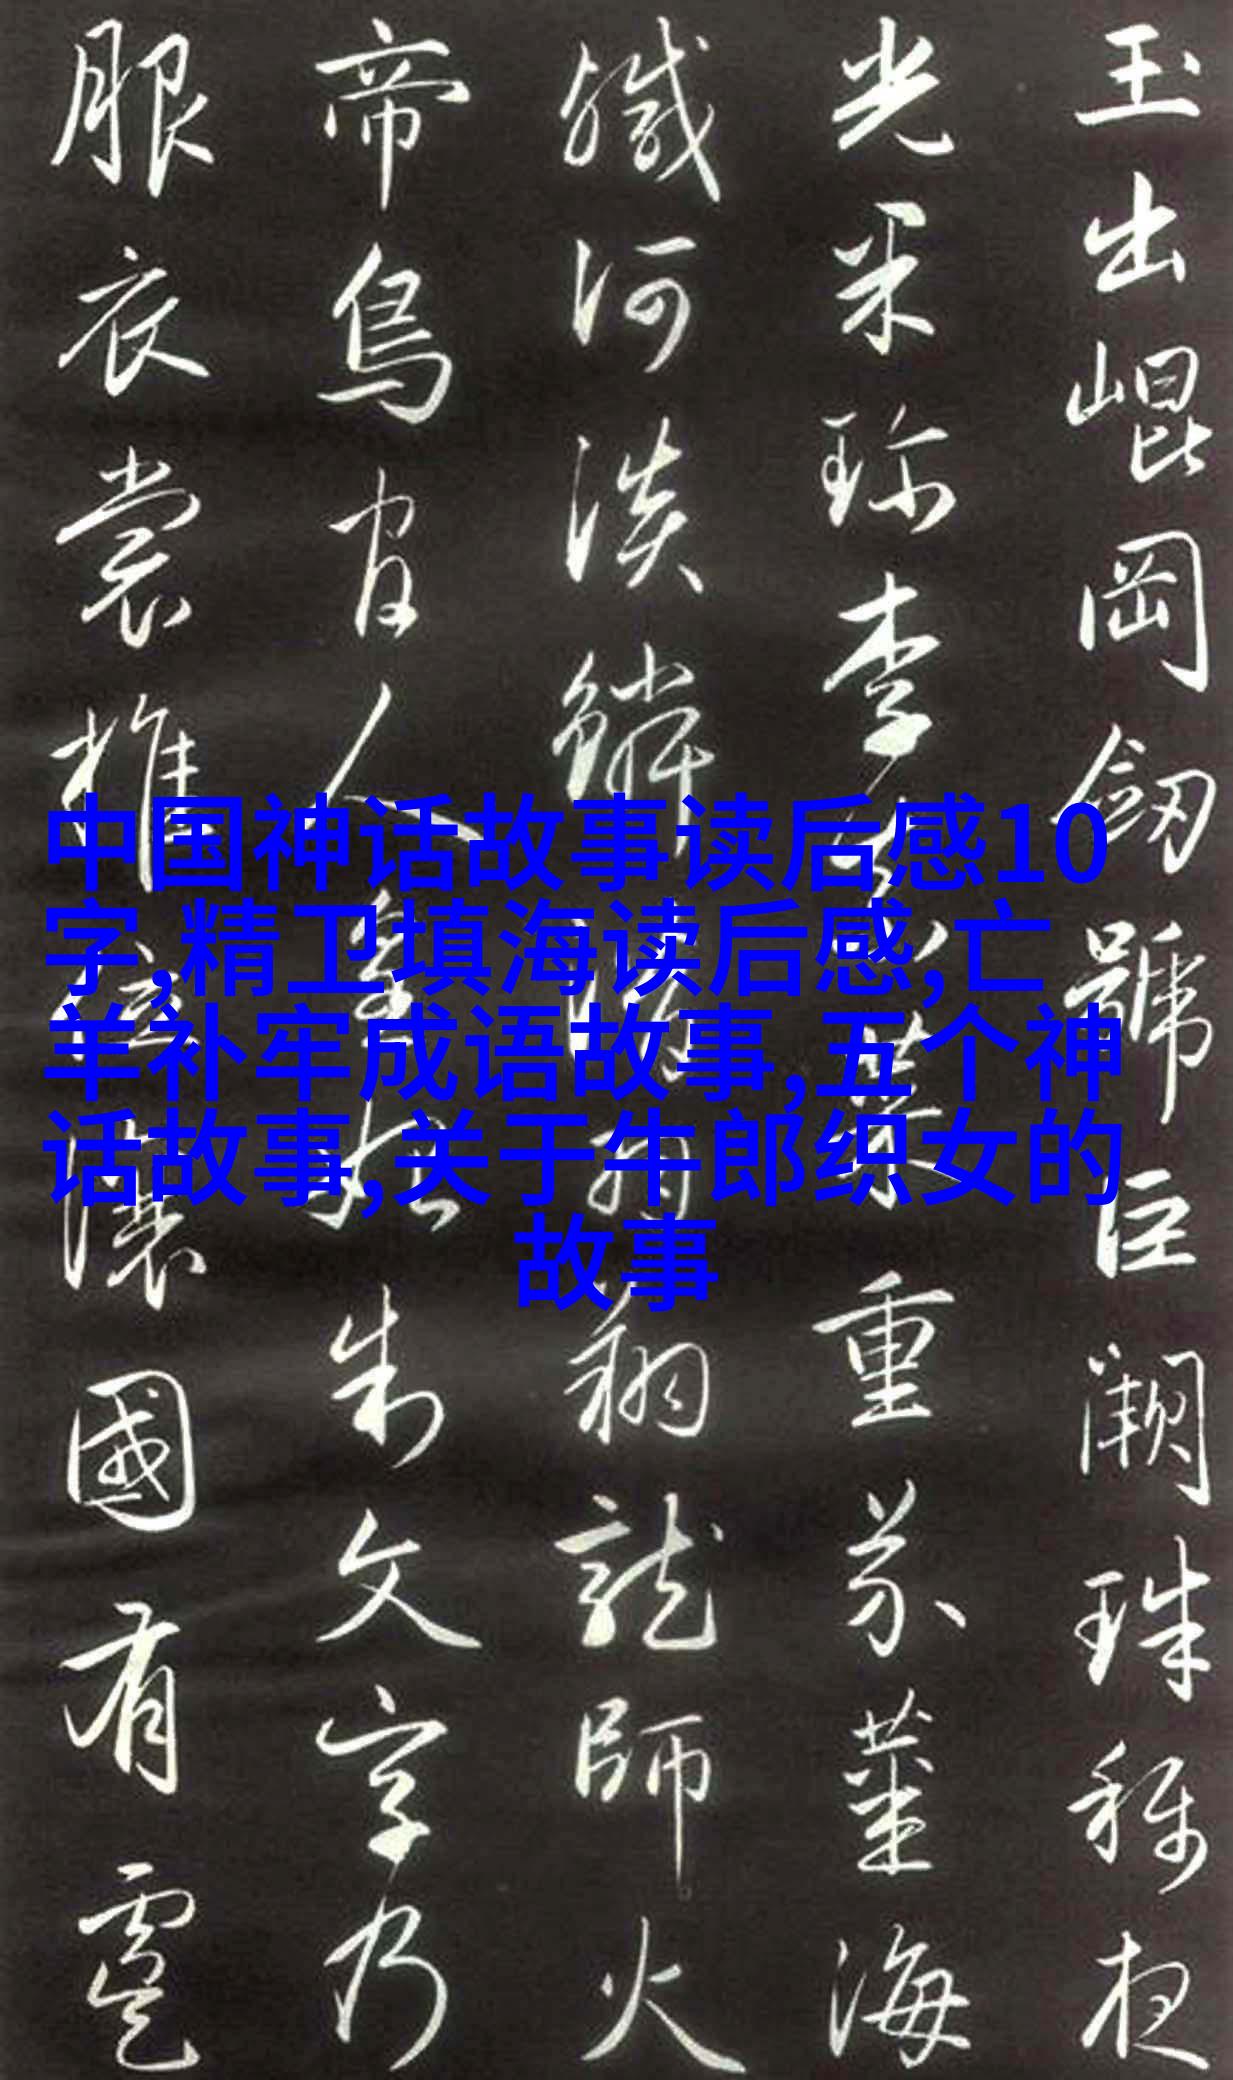 玉出崐岡劒號巨闕珠稱夜
光果珍李柰菜重芥薑海
鹹河淡鱗潛羽翔龍師火
帝鳥官人皇始制文字乃
服衣裳推位讓國有虞
中国神话故事读后感10
字,精卫填海读后感,亡
羊补牢成语故事,五个神
话故事,关于牛郎织女的
故事